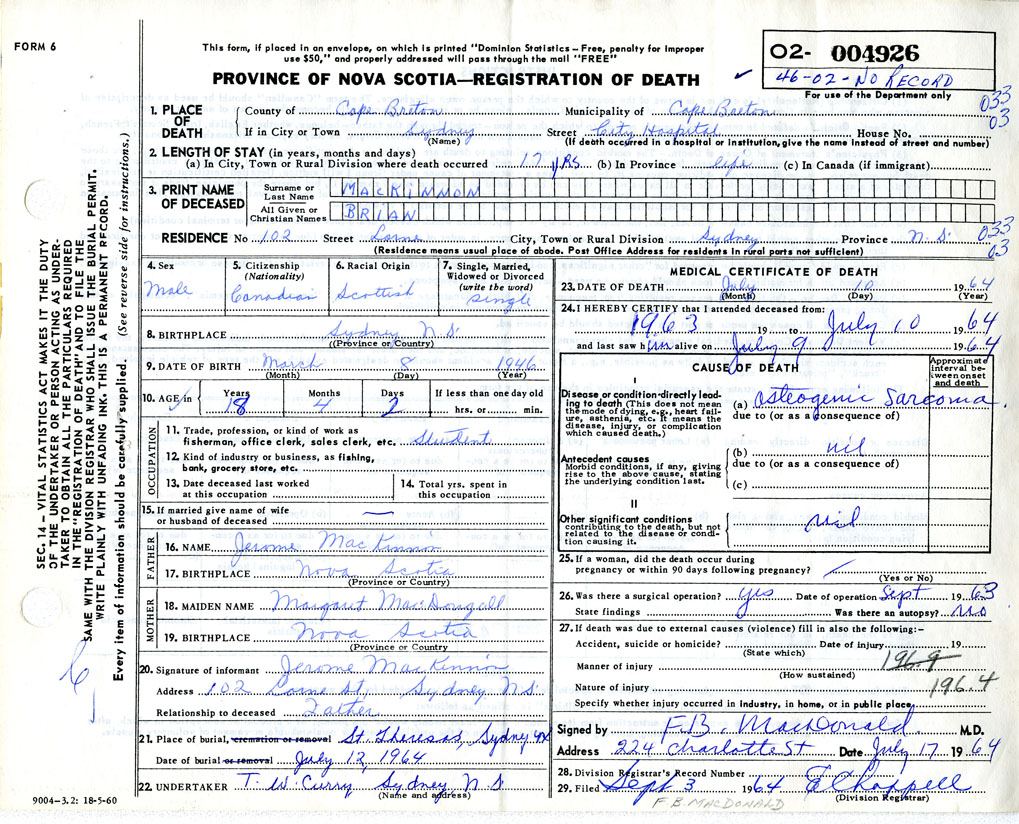 FORM 6
This form, if placed in an envelope, on which is printed "Dominion Statistics – Free, penalty for improper
use $50," and properly addressed will pass through the mail "FREE"
PROVINCE OF NOVA SCOTIA—REGISTRATION OF DEATH ✓
02- 004926
46-02-NO RECORD
For use of the Department only
033
03
1. PLACE OF DEATH
County of Cape Breton Municipality of Cape Breton
If in City or Town Sydney Street City Hospital House No.
(Name) (If death occurred in a hospital or institution, give the name instead of street and number)
2. LENGTH OF STAY (in years, months and days)
(a) In City, Town or Rural Division where death occurred 17 yrs (b) In Province life (c) In Canada (if immigrant)
3. PRINT NAME OF DECEASED
Surname or Last Name MACKINNON
All Given or Christian Names BRIAN
RESIDENCE No 102 Street Lorne City, Town or Rural Division Sydney Province N.S.
033
03
(Residence means usual place of abode. Post Office Address for residents in rural parts not sufficient)
4. Sex
Male
5. Citizenship
(Nationality)
Canadian
6. Racial Origin
Scottish
7. Single, Married,
Widowed or Divorced
(write the word)
single
8. BIRTHPLACE Sydney N.S.
((Province or Country)
9. DATE OF BIRTH March 8 1946
(Month) (Day) (Year)
10. AGE in Years Months Days If less than one day old
18 4 2 hrs. or min.
OCCUPATION
11. Trade, profession, or kind of work as
fisherman, office clerk, sales clerk, etc. Student
12. Kind of industry or business, as fishing,
bank, grocery store, etc.
13. Date deceased last worked
at this occupation
14. Total yrs. spent in
this occupation
15. If married give name of wife
or husband of deceased —
FATHER
16. NAME Jerome MacKinnon
17. BIRTHPLACE Nova Scotia
(Province or Country)
MOTHER
18. MAIDEN NAME Margaret MacDougall
19. BIRTHPLACE Nova Scotia
(Province or Country
20. Signature of informant Jerome MacKinnon
Address 102 Lorne St, Sydney N.S.
Relationship to deceased Father
21. Place of burial, cremation or removal St. Theresas, Sydney NS
Date of burial or removal July 12, 1964
22. UNDERTAKER T. W. Curry Sydney N.S
(Name and address)
MEDICAL CERTIFICATE OF DEATH
23. DATE OF DEATH July 10 1964
(Month) (Day) (Year)
24. I HEREBY CERTIFY that I attended deceased from:
1963 19 to July 10 1964
and last saw him alive on July 9 1964
CAUSE OF DEATH
Approximate
interval be-
tween onset
and death
I
Disease or condition directly lead-
ing to death (This does not mean
the mode of dying, e.g., heart fail-
ure, asthenia, etc. It means the
disease, injury, or complication
which caused death.)
(a) Osteogenic Sarcoma.
due to (or as a consequence of)
Antecedent causes
Morbid conditions, if any, giving
rise to the above cause, stating
the underlying condition last.
(b) nil
due to (or as a consequence of)
(c)
II
Other significant conditions
contributing to the death, but not
related to the disease or condi-
tion causing it.
nil
25. If a woman, did the death occur during
pregnancy or within 90 days following pregnancy?
(Yes or No)
26. Was there a surgical operation? yes Date of operation Sept 1963
State findings Was there an autopsy? no
27. If death was due to external causes (violence) fill in also the following:–
Accident, suicide or homicide? Date of injury 19
(State which)
1969
Manner of injury
(How sustained)
1964
Nature of injury
Specify whether injury occurred in industry, in home, or in public place
Signed by F.B. MacDonald M.D.
Address 224 Charlotte St Date July 17 1964
28. Division Registrar's Record Number
29. Filed Sept 3 1964 E Chappell
(Division Registrar)
F.B. MACDONALD
SEC. 14 – VITAL STATISTICS ACT MAKES IT THE DUTY
OF THE UNDERTAKER OR PERSON ACTING AS UNDER-
TAKER TO OBTAIN ALL THE PARTICULARS REQUIRED
IN THE "REGISTRATION OF DEATH" AND TO FILE THE
SAME WITH THE DIVISION REGISTRAR WHO SHALL ISSUE THE BURIAL PERMIT.
WRITE PLAINLY WITH UNFADING INK. THIS IS A PERMANENT RECORD.
Every item of information should be carefully supplied. (See reverse side for instructions.)
9004–3.2: 18-5-60